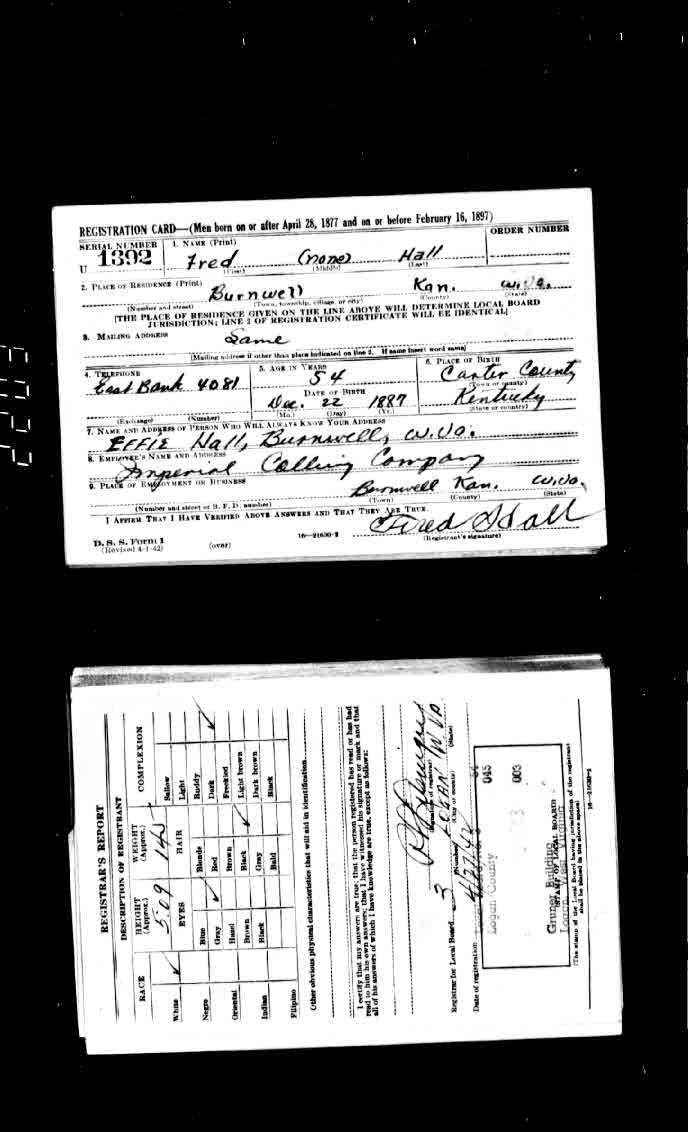 REGISTRATION CARD—(Men born on or after April 28, 1877 and on or before February 16, 1897)
SERIAL NUMBER 1. NAME (Print) ORDER NUMBER
U 1392 Fred (none) Hall
(First) (Middle) (Last)
2. PLACE OF RESIDENCE (Print)
Burnwell Kan. W.Va.
(Number and street) (Town, township, village, or city) (County) (State)
[THE PLACE OF RESIDENCE GIVEN ON THE LINE ABOVE WILL DETERMINE LOCAL BOARD
JURISDICTION; LINE 2 OF REGISTRATION CERTIFICATE WILL BE IDENTICAL]
3. MAILING ADDRESS
Same
[Mailing address if other than place indicated on line 2. If same insert word same]
4. TELEPHONE 5. AGE IN YEARS 6. PLACE OF BIRTH
East Bank 4081 54 Carter County
DATE OF BIRTH (Town or county)
Dec. 22 1887 Kentucky
(Exchange) (Number) (Mo.) (Day) (Yr.) (State or country)
7. NAME AND ADDRESS OF PERSON WHO WILL ALWAYS KNOW YOUR ADDRESS
EFFIE Hall, Burnwell, W.Va.
8. EMPLOYER'S NAME AND ADDRESS
Imperial Colliery Company
9. PLACE OF EMPLOYMENT OR BUSINESS
Burnwell Kan. W.Va.
(Number and street or R. F. D. number) (Town) (County) (State)
I AFFIRM THAT I HAVE VERIFIED ABOVE ANSWERS AND THAT THEY ARE TRUE.
Fred Hall
D. S. S. Form 1 (Revised 4-1-42) (over) 16—21630-2 (Registrant's signature)
REGISTRAR'S REPORT
DESCRIPTION OF REGISTRANT
RACE HEIGHT (Approx.) WEIGHT (Approx.) COMPLEXION
5-09 145
White EYES HAIR Sallow
Light
Negro Blue Blonde Ruddy
Gray Red Dark
Oriental Hazel Brown Freckled
Brown Black Light brown
Indian Black Gray Dark brown
Bald Black
Filipino
Other obvious physical characteristics that will aid in identification
I certify that my answers are true; that the person registered has read or has had
read to him his own answers; that I have witnessed his signature or mark and that
all of his answers of which I have knowledge are true, except as follows:
(Signature of registrar)
Registrar for Local Board 3 LOGAN W VA
(Number) (City or county) (State)
Date of registration 4/27/42
Logan County 045 003
Gruner Building
Logan, West Virginia
(STAMP OF LOCAL BOARD)
(The stamp of the Local Board having jurisdiction of the registrant
shall be placed in the above space)
16—21630-2